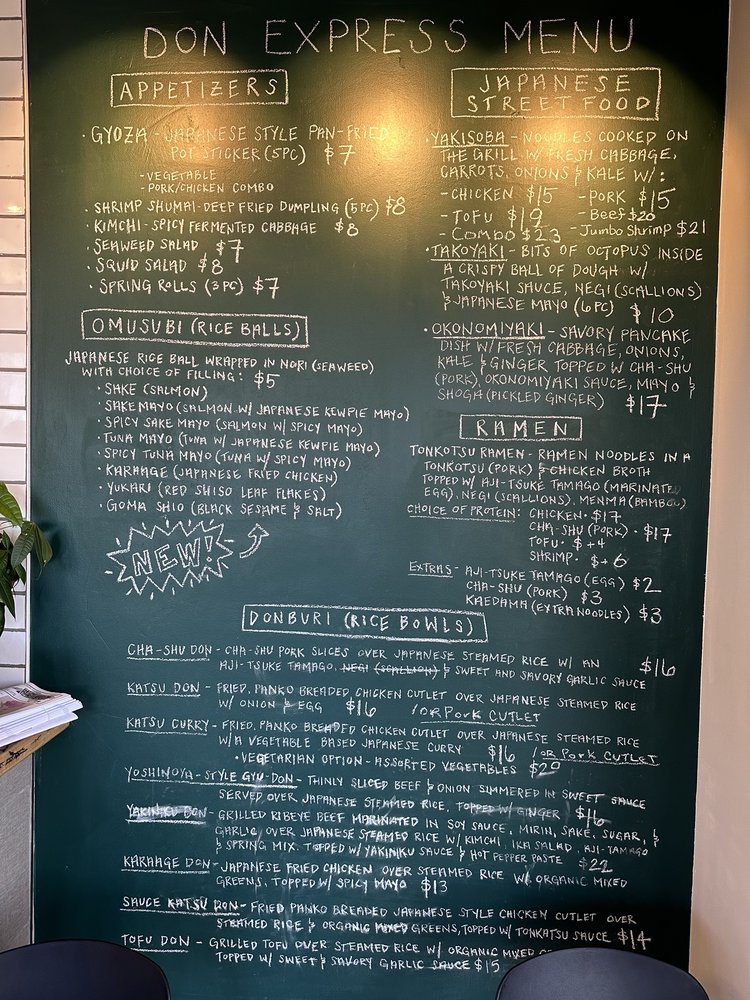 DON EXPRESS MENU
APPETIZERS
· GYOZA - JAPANESE STYLE PAN-FRIED
POT STICKER (5PC) $7
- VEGETABLE
- PORK/CHICKEN COMBO
· SHRIMP SHUMAI - DEEP FRIED DUMPLING (5PC) $8
· KIMCHI - SPICY FERMENTED CABBAGE $8
· SEAWEED SALAD $7
· SQUID SALAD $8
· SPRING ROLLS (3PC) $7
OMUSUBI (RICE BALLS)
JAPANESE RICE BALL WRAPPED IN NORI (SEAWEED)
WITH CHOICE OF FILLING: $5
· SAKE (SALMON)
· SAKE MAYO (SALMON W/ JAPANESE KEWPIE MAYO)
· SPICY SAKE MAYO (SALMON W/ SPICY MAYO)
· TUNA MAYO (TUNA W/ JAPANESE KEWPIE MAYO)
· SPICY TUNA MAYO (TUNA W/ SPICY MAYO)
· KARAAGE (JAPANESE FRIED CHICKEN)
· YUKARI (RED SHISO LEAF FLAKES)
· GOMA SHIO (BLACK SESAME & SALT)
NEW!
JAPANESE
STREET FOOD
· YAKISOBA - NOODLES COOKED ON
THE GRILL W/ FRESH CABBAGE,
CARROTS, ONIONS & KALE W/:
- CHICKEN $15 - PORK $15
- TOFU $19 - Beef $20
- Combo $23 - Jumbo Shrimp $21
· TAKOYAKI - BITS OF OCTOPUS INSIDE
A CRISPY BALL OF DOUGH W/
TAKOYAKI SAUCE, NEGI (SCALLIONS)
& JAPANESE MAYO (6PC) $10
· OKONOMIYAKI - SAVORY PANCAKE
DISH W/ FRESH CABBAGE, ONIONS,
KALE & GINGER TOPPED W/ CHA-SHU
(PORK), OKONOMIYAKI SAUCE, MAYO &
SHOGA (PICKLED GINGER) $17
RAMEN
TONKOTSU RAMEN - RAMEN NOODLES IN A
TONKOTSU (PORK) & CHICKEN BROTH
TOPPED W/ AJI-TSUKE TAMAGO (MARINATED
EGG), NEGI (SCALLIONS), MENMA (BAMBOO)
CHOICE OF PROTEIN: CHICKEN · $17
CHA-SHU (PORK) · $17
TOFU · $+4
SHRIMP · $+6
EXTRAS - AJI-TSUKE TAMAGO (EGG) $2
CHA-SHU (PORK) $3
KAEDAMA (EXTRA NOODLES) $3
DONBURI (RICE BOWLS)
CHA-SHU DON - CHA-SHU PORK SLICES OVER JAPANESE STEAMED RICE W/ AN $16
AJI-TSUKE TAMAGO, NEGI (SCALLION) & SWEET AND SAVORY GARLIC SAUCE
KATSU DON - FRIED, PANKO BREADED, CHICKEN CUTLET OVER JAPANESE STEAMED RICE
W/ ONION & EGG $16 / OR PORK CUTLET
KATSU CURRY - FRIED, PANKO BREADED CHICKEN CUTLET OVER JAPANESE STEAMED RICE
W/ A VEGETABLE BASED JAPANESE CURRY $16 / OR PORK CUTLET
· VEGETARIAN OPTION - ASSORTED VEGETABLES $20
YOSHINOYA-STYLE GYU-DON - THINLY SLICED BEEF & ONION SIMMERED IN SWEET SAUCE
SERVED OVER JAPANESE STEAMED RICE, TOPPED W/ GINGER $16
YAKINIKU DON - GRILLED RIBEYE BEEF MARINATED IN SOY SAUCE, MIRIN, SAKE, SUGAR, &
GARLIC OVER JAPANESE STEAMED RICE W/ KIMCHI, IKA SALAD, AJI-TAMAGO
& SPRING MIX. TOPPED W/ YAKINIKU SAUCE & HOT PEPPER PASTE $22
KARAAGE DON - JAPANESE FRIED CHICKEN OVER STEAMED RICE W/ ORGANIC MIXED
GREENS, TOPPED W/ SPICY MAYO $13
SAUCE KATSU DON - FRIED PANKO BREADED JAPANESE STYLE CHICKEN CUTLET OVER
STEAMED RICE & ORGANIC MIXED GREENS, TOPPED W/ TONKATSU SAUCE $14
TOFU DON - GRILLED TOFU OVER STEAMED RICE W/ ORGANIC MIXED
TOPPED W/ SWEET & SAVORY GARLIC SAUCE $15